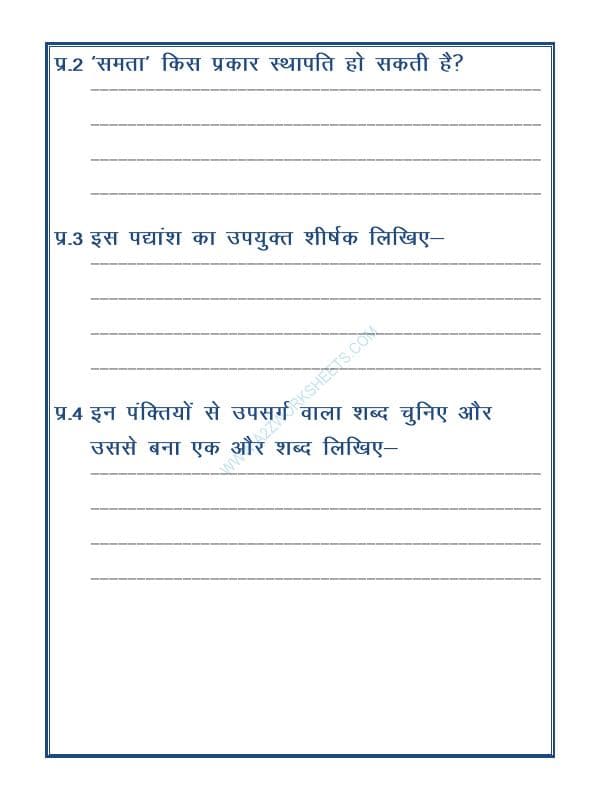 प्र.2 'समता' किस प्रकार स्थापति हो सकती है?
प्र.3 इस पद्यांश का उपयुक्त शीर्षक लिखिए–
प्र.4 इन पंक्तियों से उपसर्ग वाला शब्द चुनिए और
उससे बना एक और शब्द लिखिए–
WWW.A2ZWORKSHEETS.COM